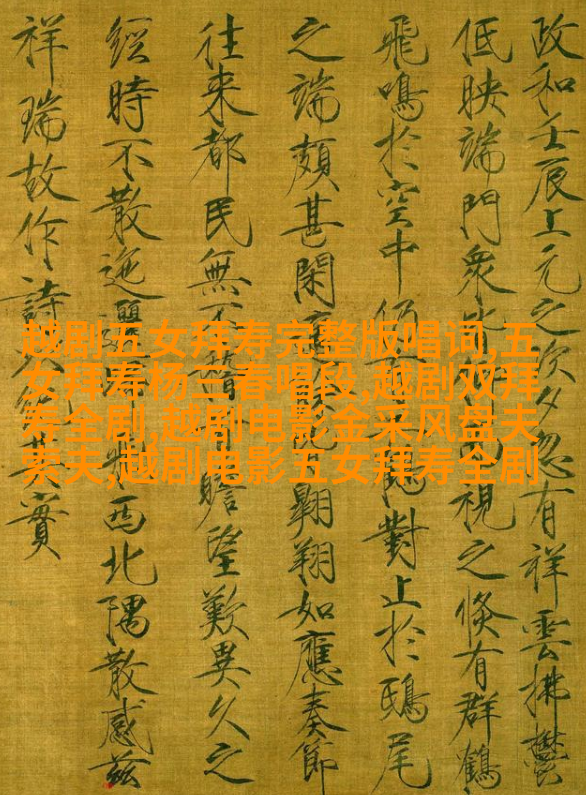 政和壬辰上元之次夕忽有祥雲拂鬱
低映端門衆視之倏有群鶴
飛鳴於空中仍對止於鴟尾
之端頗甚閑翱翔如應奏節
往来都民無不瞻望歎異久之
經時不散迤邐西北隅散感兹
祥瑞故作詩其實
越剧五女拜寿完整版唱词,五
女拜寿杨三春唱段,越剧双拜
寿全剧,越剧电影金采风盘夫
索夫,越剧电影五女拜寿全剧